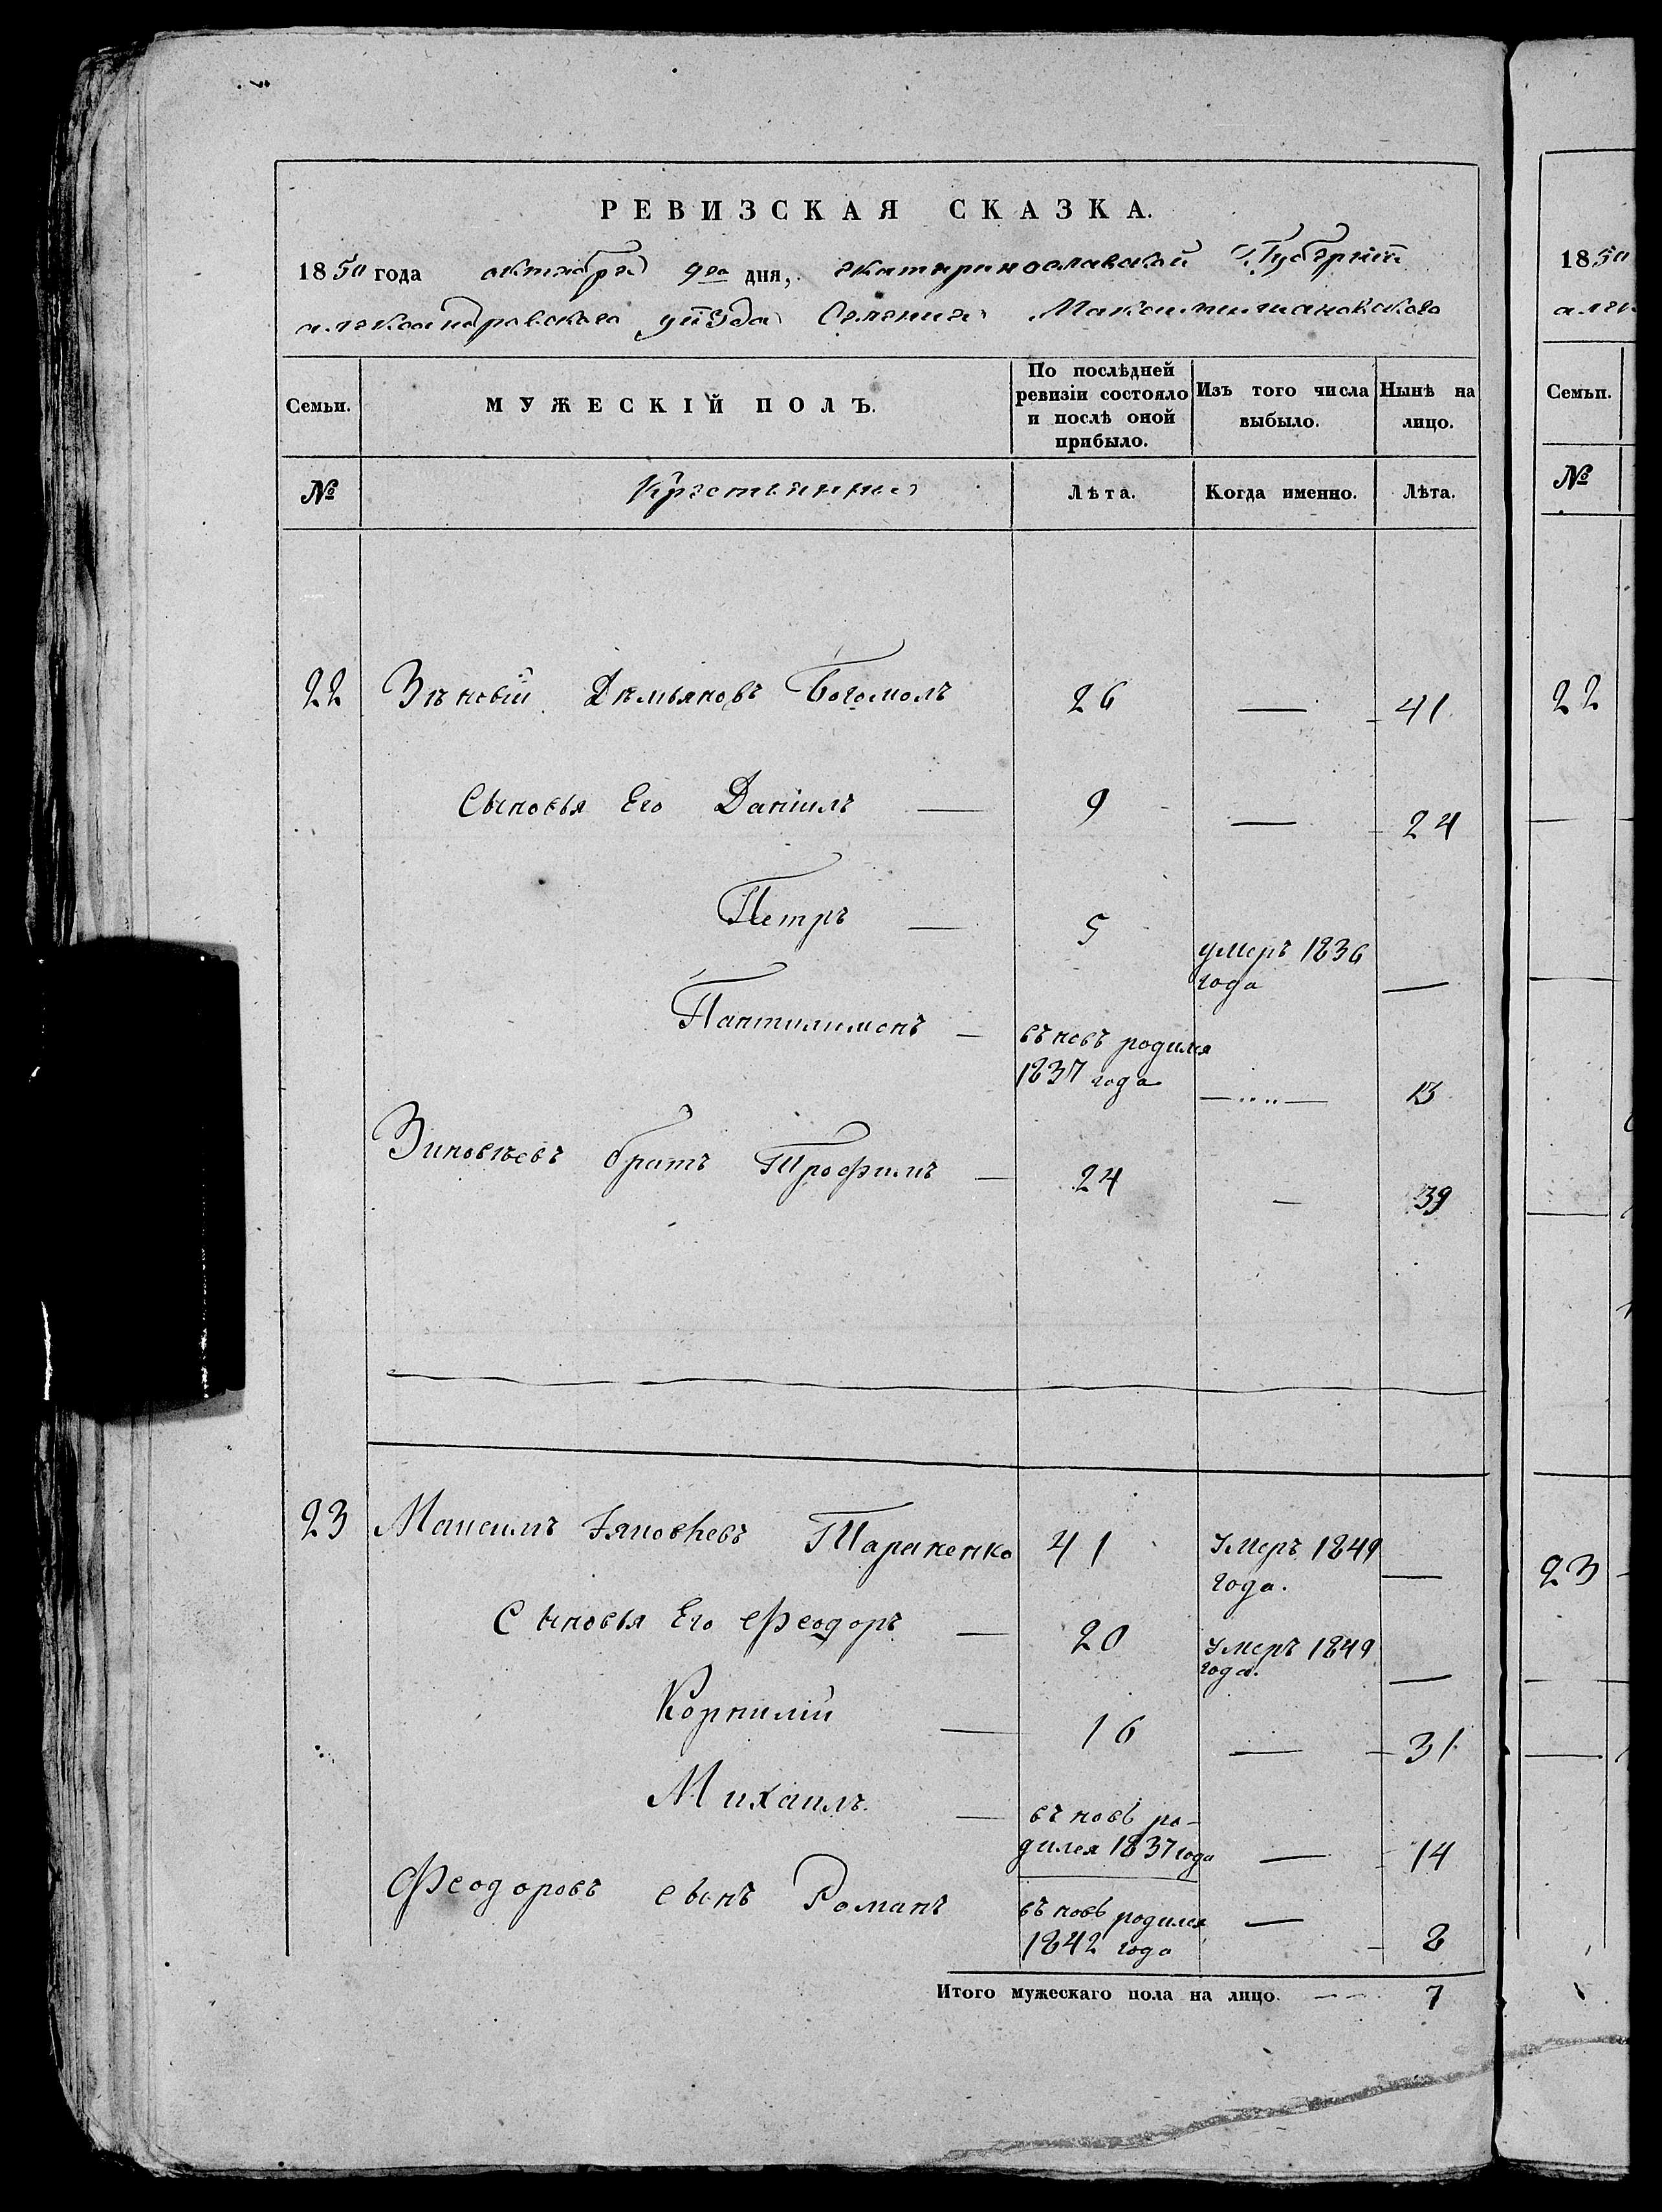 РЕВИЗСКАЯ СКАЗКА.
1850 года октября 9го дня, екатеринославской Губерніи
александровскаго уѣзда Селенія
Семьи.
МУЖЕСКІЙ ПОЛЪ.
По послѣдней ревизіи состояло и послѣ оной прибыло.
Изъ того числа выбыло.
Нынѣ на лицо.
№ Крестьянине Лѣта. Когда именно. Лѣта.
22 Зѣновій Демьяновъ Богомолъ 26 — 41
Сыновья Его Даніилъ — 9 — 24
Петръ — 5 умеръ 1836 года —
Пантилимонъ — въновъ родился 1837 года — 13
Зиновѣевъ братъ Трофимъ — 24 — 39
23 Максимъ Тараненко 41 Умеръ 1849 года. —
Сыновья Его Феодоръ — 20 Умеръ 1849 года. —
Корнилій — 16 — 31
Михаилъ. — въновь родился 1837 года — 14
Феодоровъ сынъ Романъ въновь родился 1842 года — 8
Итого мужескаго пола на лицо. 7
1850
Семьи.
№
22
23